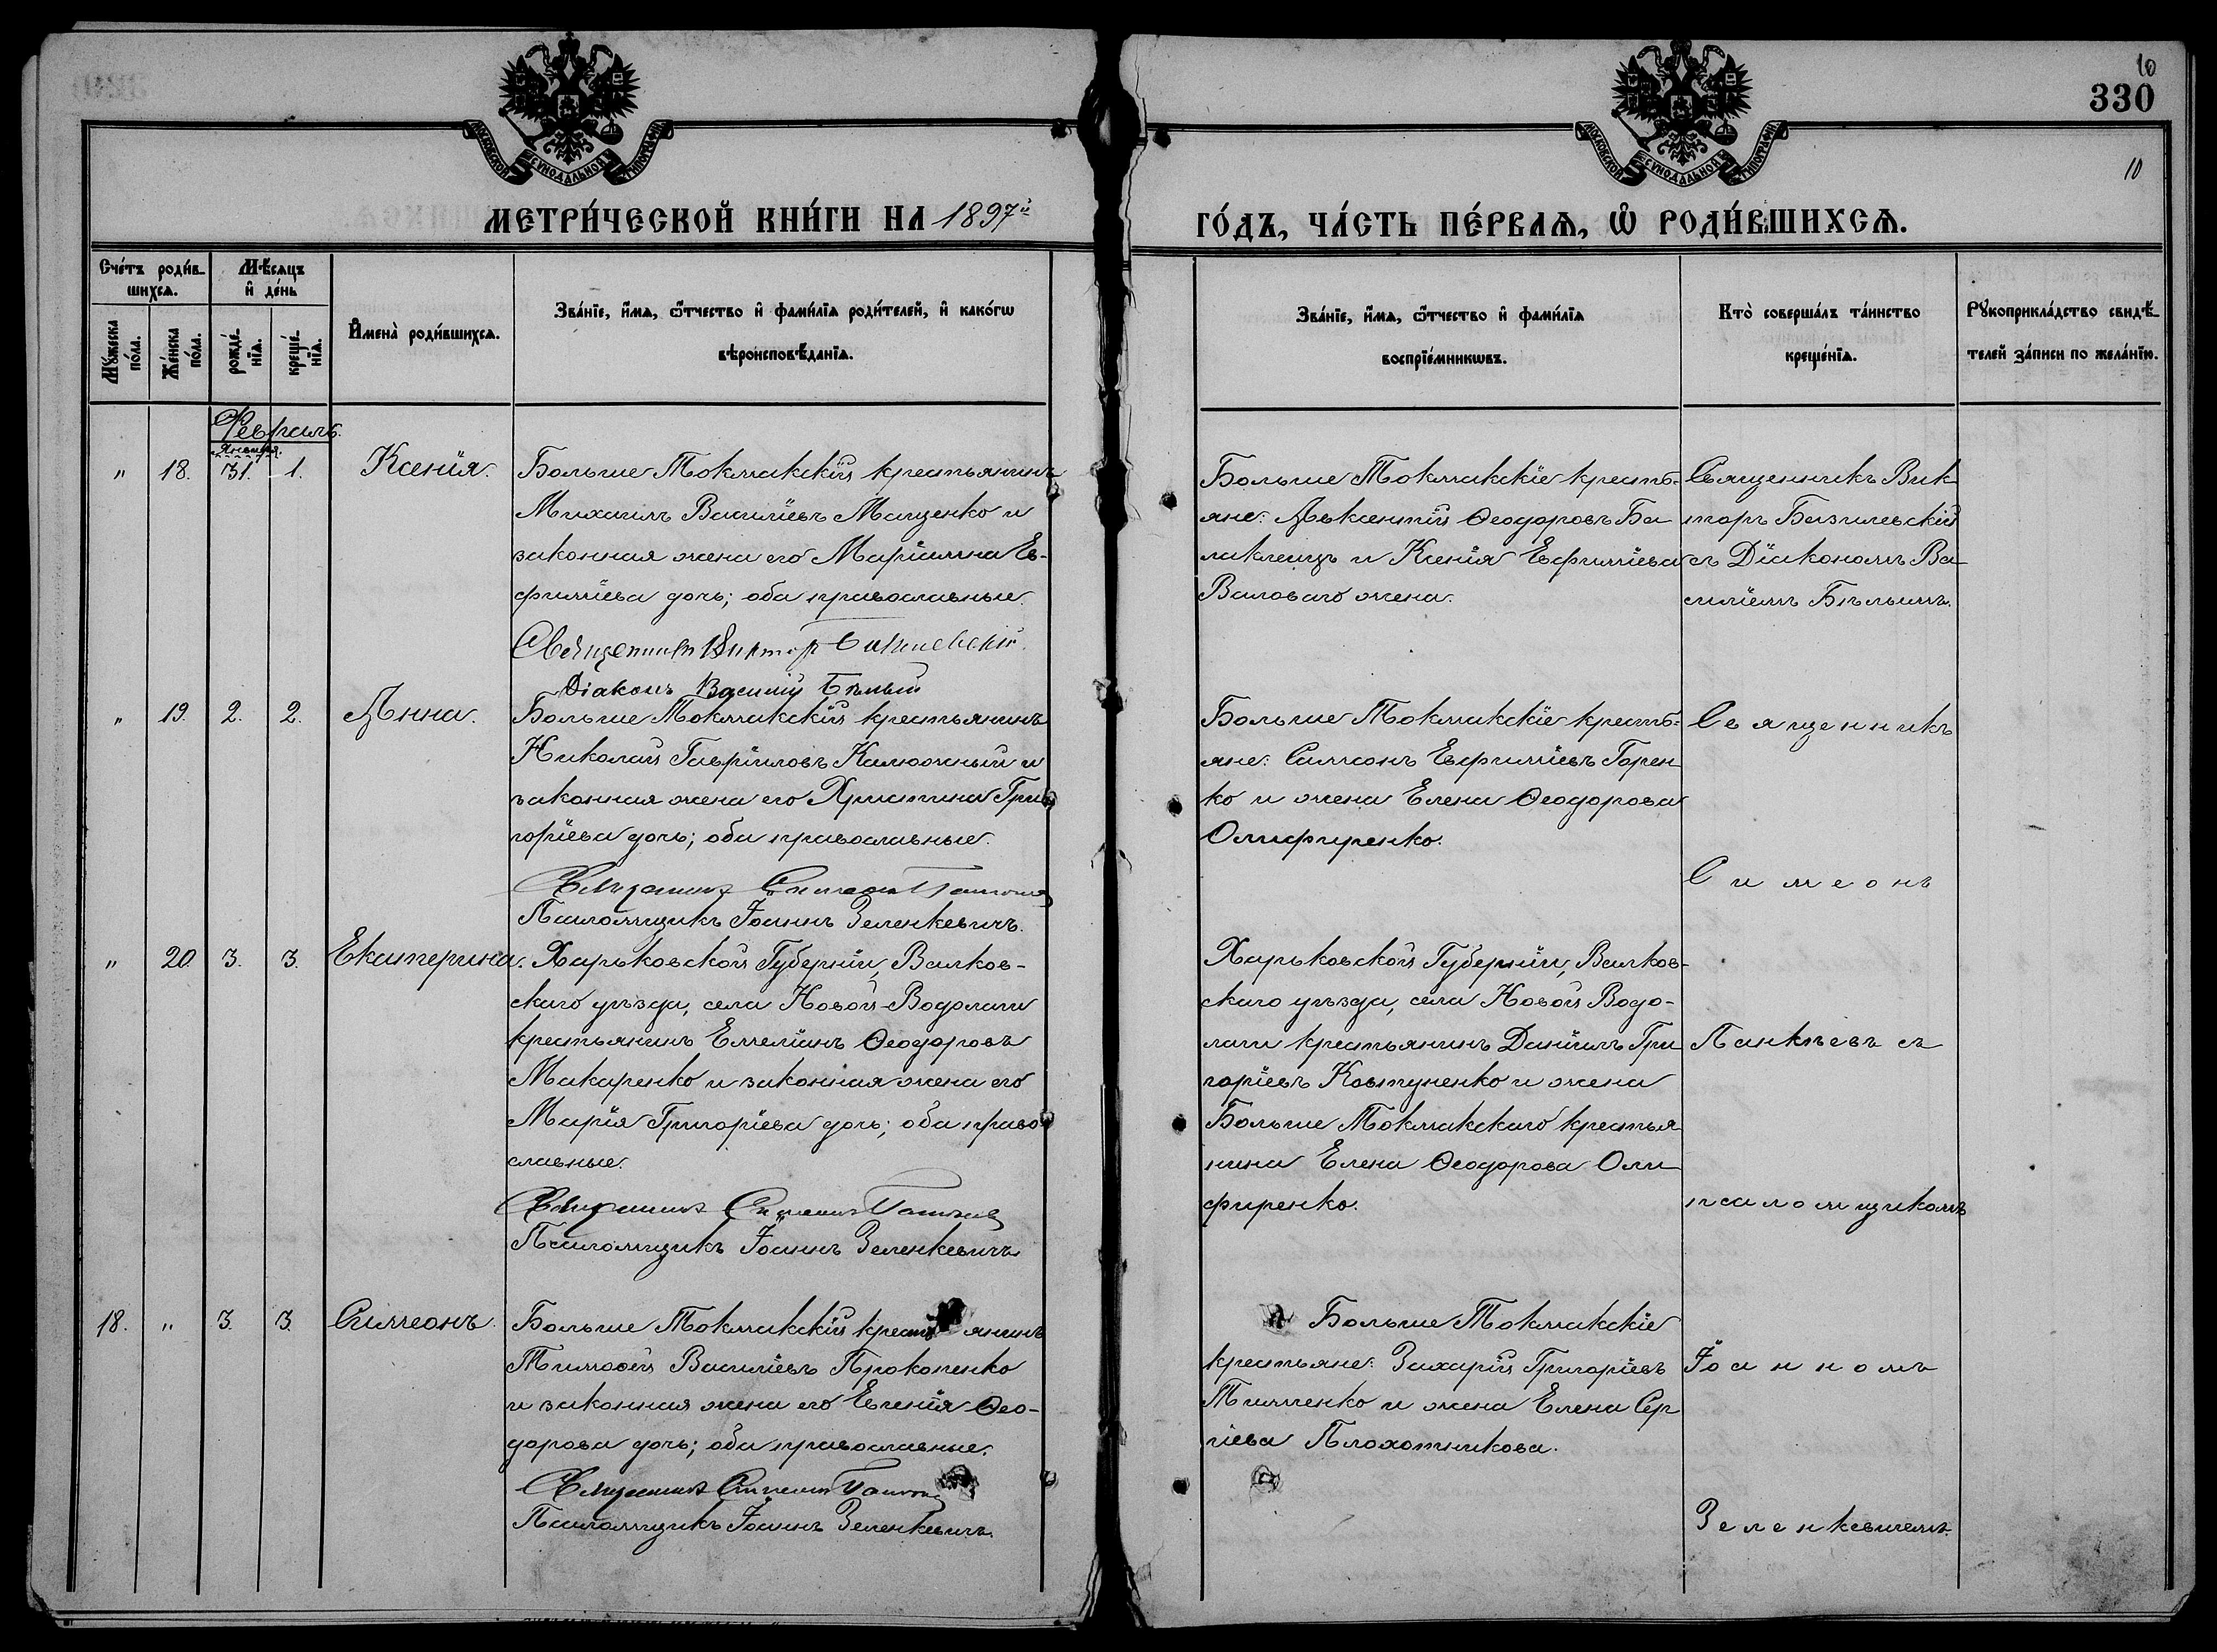 10
330
10
МОСКОВСКОЙ СѴНОДАЛЬНОЙ ТИПОГРАФІИ
МОСКОВСКОЙ СѴНОДАЛЬНОЙ ТИПОГРАФІИ
МЕТРИ́ЧЕСКОЙ КНИ́ГИ НА 1897й
ГО́ДЪ, ЧА́СТЬ ПЕ́РВАѦ, Ѽ РОДИ́ВШИХСѦ.
Сче́тъ роди́в-
шихсѧ.
Мꙋ́жеска
по́ла.
Же́нска
по́ла.
Мѣ́сѧцъ
и҆ де́нь
рожде́-
нїѧ.
креще́-
нїѧ.
И҆мена̀ роди́вшихсѧ.
Зва́нїе, и҆́мѧ, ѻ҆́тчество и҆ фами́лїѧ роди́телей, и҆ како́гѡ
вѣроисповѣ́данїѧ.
Зва́нїе, и҆́мѧ, ѻ҆́тчество и҆ фами́лїѧ
воспрїе́мникѡвъ.
Кто̀ соверша́лъ та́инство
креще́нїѧ.
Рꙋкоприкла́дство свидѣ́-
телей за́писи по жела́нїю.
Февраль.
Января.
" 18. 31. 1. Ксенія.
Больше Токмакскій крестьянинъ
Михаилъ Василіевъ Маценко и
законная жена его Маріамна Ев-
фиміева дочь; оба православные.
Священникъ Викторъ Базилевскій.
Діаконъ Василій Бѣлый
Больше Токмакскіе кресть-
яне: Авксентій Ѳеодоровъ Ба
лаклеецъ и Ксенія Евфиміева
Валоваго жена.
Священникъ Вик
торъ Базилевскій
съ Діакономъ Ва
силіемъ Бѣлымъ.
" 19. 2. 2. Анна.
Больше Токмакскій крестьянинъ
Николай Гавріиловъ Калюжный и
законная жена его Христина Гри
горіева дочь; оба православные.
Священникъ Симеонъ
Псаломщикъ Іоаннъ Зеленкевичъ.
Больше Токмакскіе кресть-
яне: Самсонъ Евфиміевъ Горен
ко и жена Елена Ѳеодорова
Олифиренко.
Священникъ
Симеонъ
" 20. 3. 3. Екатерина.
Харьковской Губерніи, Валков-
скаго уѣзда, села Новой-Водолаги
крестьянинъ Емеліанъ Ѳеодоровъ
Макаренко и законная жена его
Марія Григоріева дочь; оба право
славные.
Священникъ Симеонъ
Псаломщикъ Іоаннъ Зеленкевичъ
Харьковской Губерніи, Валков-
скаго уѣзда, села Новой Водо-
лаги крестьянинъ Даніилъ Гри
горіевъ Ковтуненко и жена
Больше Токмакскаго крестья
нина Елена Ѳеодорова Оли
фиренко.
Панкѣевъ съ
псаломщикомъ
18. " 3. 3. Симеонъ.
Больше Токмакскій крестьянинъ
Тимофей Василіевъ Прокопенко
и законная жена его Евгенія Ѳео-
дорова дочь; оба православные.
Священникъ Симеонъ
Псаломщикъ Іоаннъ Зеленкевичъ.
Больше Токмакскіе
крестьяне: Захарій Григоріевъ
Тимченко и жена Елена Сер
гіева Плохотникова.
Іоанномъ
Зеленкевичемъ.